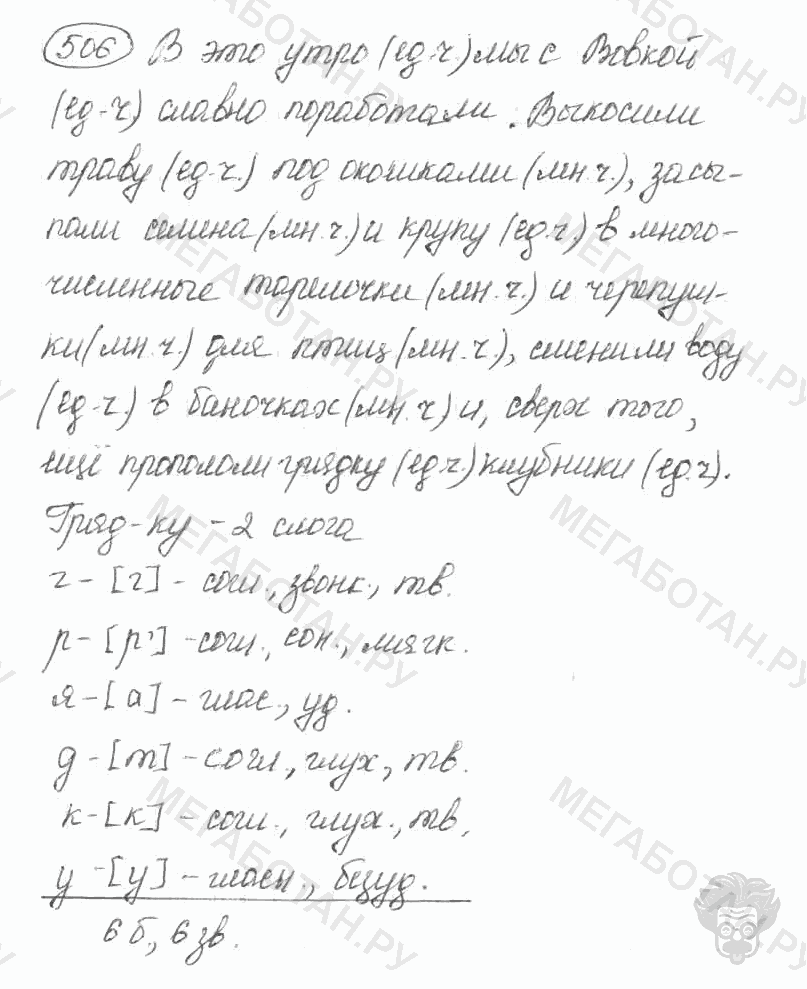 506 В это утро (ед.ч) мы с Вовкой
(ед.ч) славно поработали. Выкосили
траву (ед.ч.) под окошками (мн.ч.), засы-
пали семена (мн.ч.) и крупу (ед.ч.) в много-
численные тарелочки (мн.ч.) и черепуш-
ки (мн.ч.) для птиц (мн.ч.), сменили воду
(ед.ч) в баночках (мн.ч) и, сверх того,
ещё пропололи грядку (ед.ч.) клубники (ед.ч).
Гряд-ку - 2 слога
г - [г] - согл., звонк., тв.
р - [р'] - согл., сон., мягк.
я - [а] - глас., уд.
д - [т] - согл., глух., тв.
к - [к] - согл., глух., тв.
у - [у] - гласн., безуд.
6 б., 6 зв.
МЕГАБОТАН.РУ